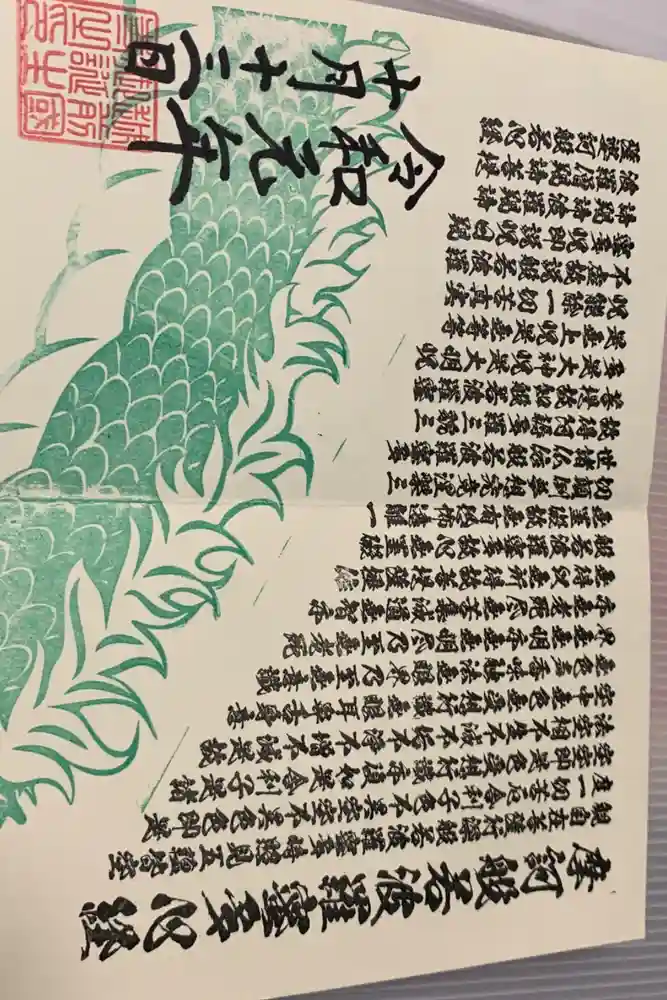 摩訶般若波羅蜜多心経
観自在菩薩行深般若波羅蜜多時照見五蘊皆空
度一切苦厄舎利子色不異空空不異色色即是
空空即是色受想行識亦復如是舎利子是諸
法空相不生不滅不垢不浄不増不減是故
空中無色無受想行識無眼耳鼻舌身意
無色声香味触法無眼界乃至無意識
界無無明亦無無明尽乃至無老死
亦無老死尽無苦集滅道無智亦
無得以無所得故菩提薩埵依
般若波羅蜜多故心無罣礙
無罣礙故無有恐怖遠離一
切顛倒夢想究竟涅槃三
世諸仏依般若波羅蜜多
故得阿耨多羅三藐三
菩提故知般若波羅蜜
多是大神呪是大明呪
是無上呪是無等等
呪能除一切苦真実
不虚故説般若波羅
蜜多呪即説呪曰羯
諦羯諦波羅羯諦
波羅僧羯諦菩提
薩婆訶般若心経
令和元年
十月十三日